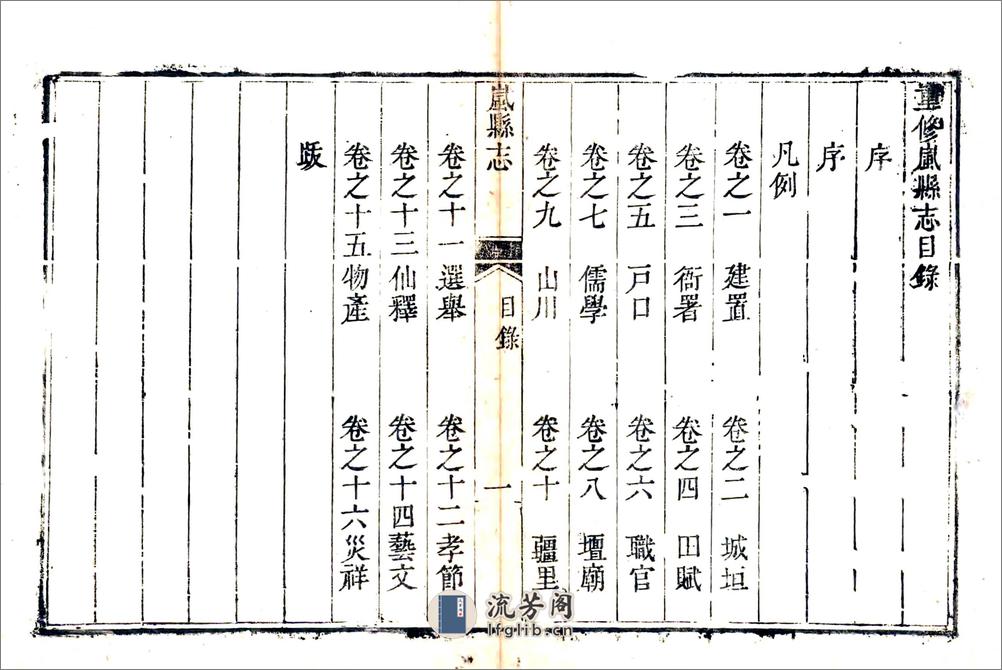 重修嵐縣志目錄
序
序
凡例
卷之一 建置 卷之二 城垣
卷之三 衙署 卷之四 田賦
卷之五 戶口 卷之六 職官
卷之七 儒學 卷之八 壇廟
卷之九 山川 卷之十 疆里
嵐縣志 目錄 一
卷之十一 選舉 卷之十二 孝節
卷之十三 仙釋 卷之十四 藝文
卷之十五 物產 卷之十六 災祥
跋
流芳阁
lfglib.cn